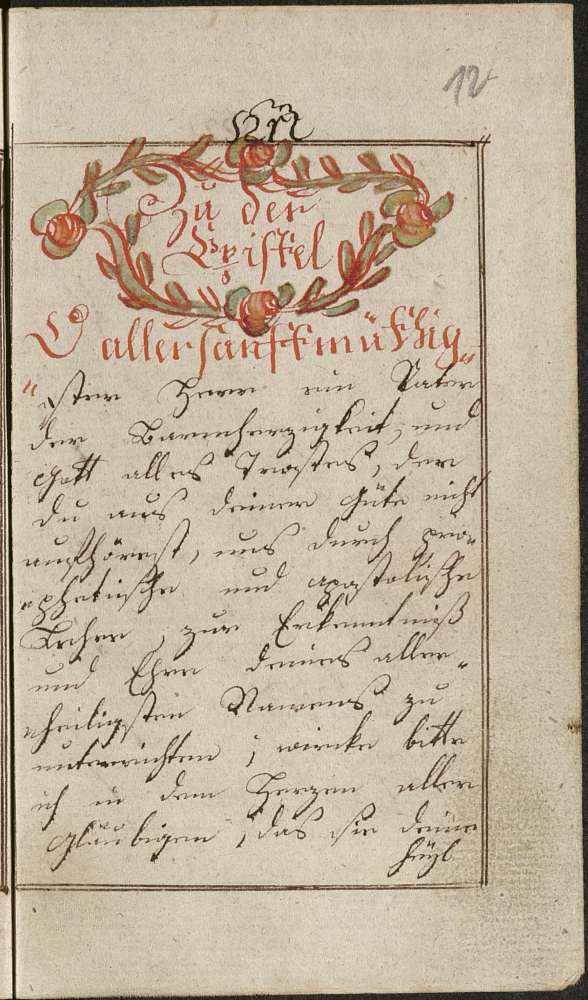 12
Zu der
Epistel
O allersanftmüthig„
„ster Herr ein Vater
der Barmherzigkeit, und
Gott alles Trostes, der
du aus deiner Güte nicht
aufhörest, uns durch pro„
„phetische und apostolische
Lehren, zur Erkenntniß
und Ehre deines aller„
„heiligsten Namens zu
unterrichten; wircke bitte
ich in dem Herzen aller
Glaubigen, das sie deine
heyl